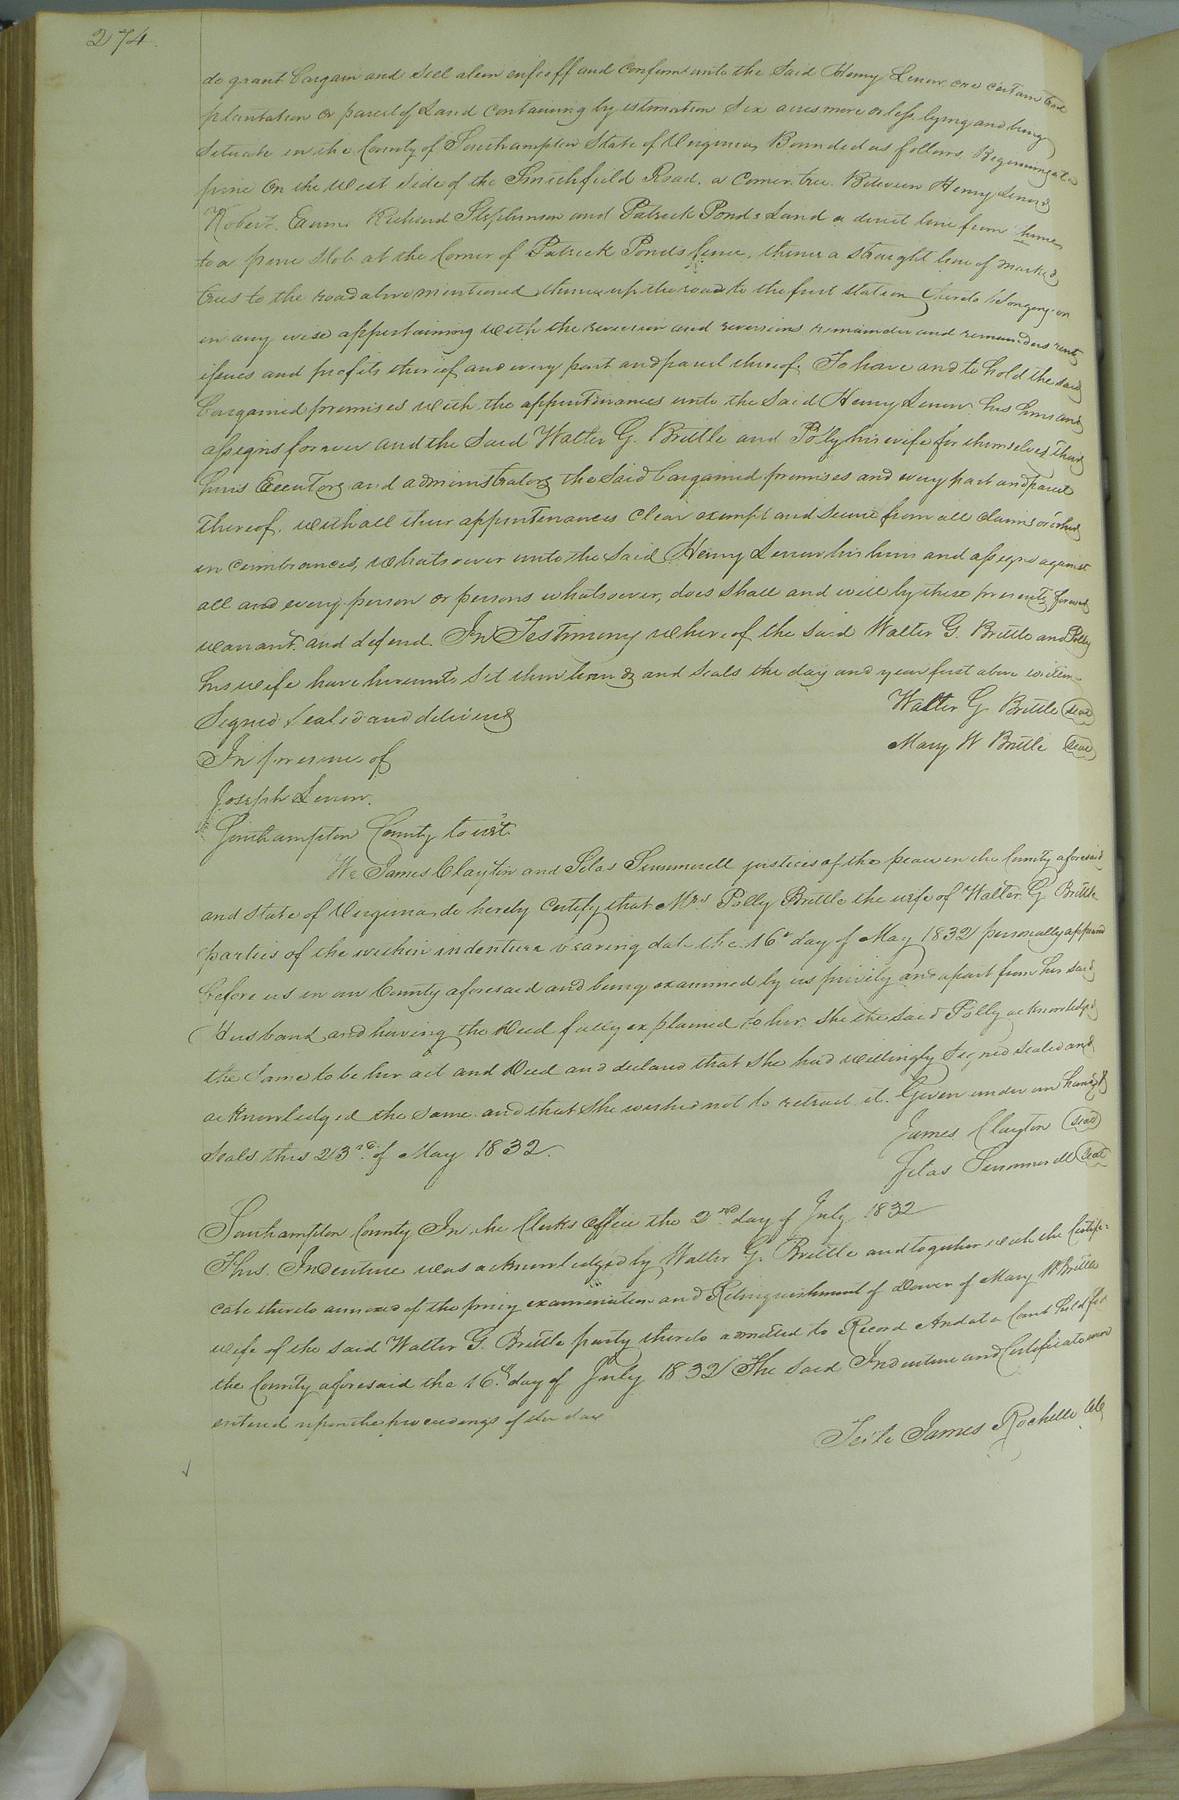 274.
do grant bargain and sell alien enfeoff and confirm unto the Said Henry one certain
plantation or parcel of Land containing by estimation Six acres more or less lying and being
Situate in the County of Southampton State of Virginia, Bounded as follows. Beginning at a
pine On the West Side of the Smithfield Road. a Corner tree. Between Henry
Robert Richard Stephenson and Patrick Ponds Land a direct line from
to a pine Stob at the Corner of Patrick Ponds fence, thence a Straight line of marked
trees to the road above mentioned thence up the road to the first station thereto belonging or
in any wise appertaining with the revercion and reversions remainder and remainders rents
issues and profits thereof and every part and parcel thereof. To have and to hold the said
bargained premises with the appurtenances unto the Said Henry his heirs and
assigns forever and the Said Walter G. Brittle and Poly his wife for themselves their
heirs Executors and administrators the Said bargained premises and every part and parcel
thereof. with all their appurtenances Clear exempt and Secure from all claims or other
in cumbrances, whatsoever unto the Said Henry his heirs and assigns against
all and every person or persons whatsoever, does Shall and will by these presents forever
warrant and defend. In Testimony whereof the Said Walter G. Brittle and Polly
his wife have hereunto Set their hands and Seals the day and year first above written
Walter G Brittle Seal
Signed Sealed and delivered
Mary W Brittle Seal
In presence of
Joseph
Southampton County to wit
We James Clayton and Silas Summerell justices of the peace in the County aforesaid
and State of Virginia do hereby Certify that Mrs Polly Brittle the wife of Walter G Brittle
parties of the within indenture bearing date the 16th day of May 1832 personally appeared
before us in our County aforesaid and being examined by us privily and apart from her said
Husband and having the Deed fully explained to her She the Said Polly acknowledged
the Same to be her act and Deed and declared that She had willingly Signed Sealed and
acknowledged the Same and that She wished not to retract it. Given under our hands &
Seals this 23rd of May 1832.
James Clayton Seal
Silas Summerell Seal
Southampton County In the Clerks Office the 2nd day of July 1832
This Indenture was acknowledged by Walter G. Brittle and together with the Certifi-
cate thereto annexed of the privy examination and Relinquishment of Dower of Mary W Brittle
wife of the said Walter G. Brittle party thereto admitted to Record And at a Court held for
the County aforesaid the 16th day of July 1832 The Said Indenture and Certificate were
entered upon the proceedings of the day
Teste James Rochelle Clk